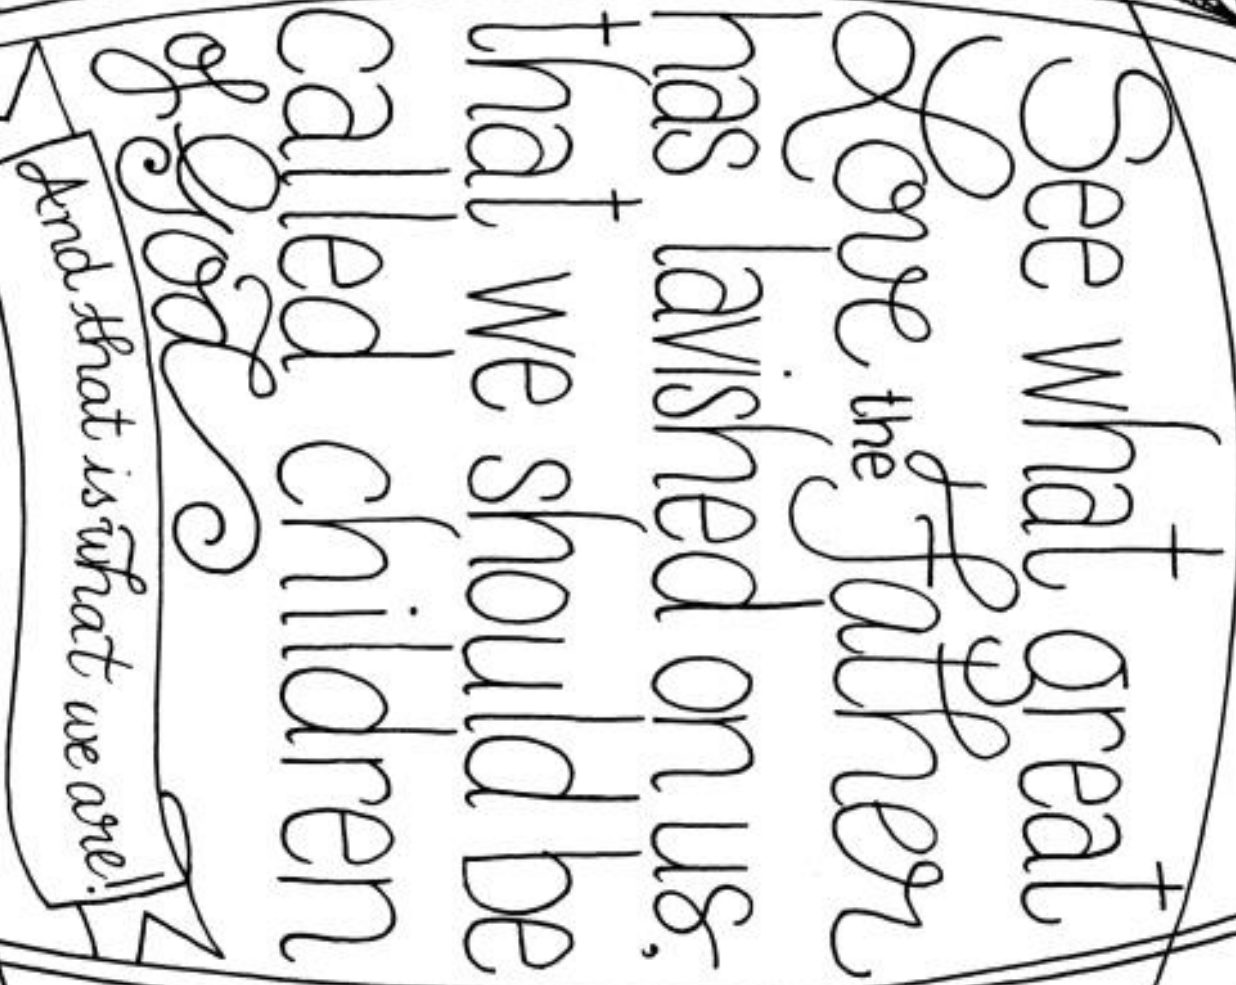 See what great
Love the Father
has lavished on us,
that we should be
called children
of God
And that is what we are!